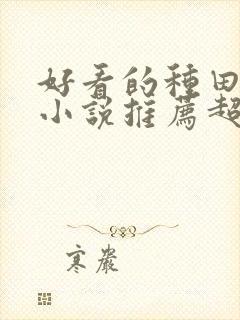 好看的種田
小說推薦超
寒嚴